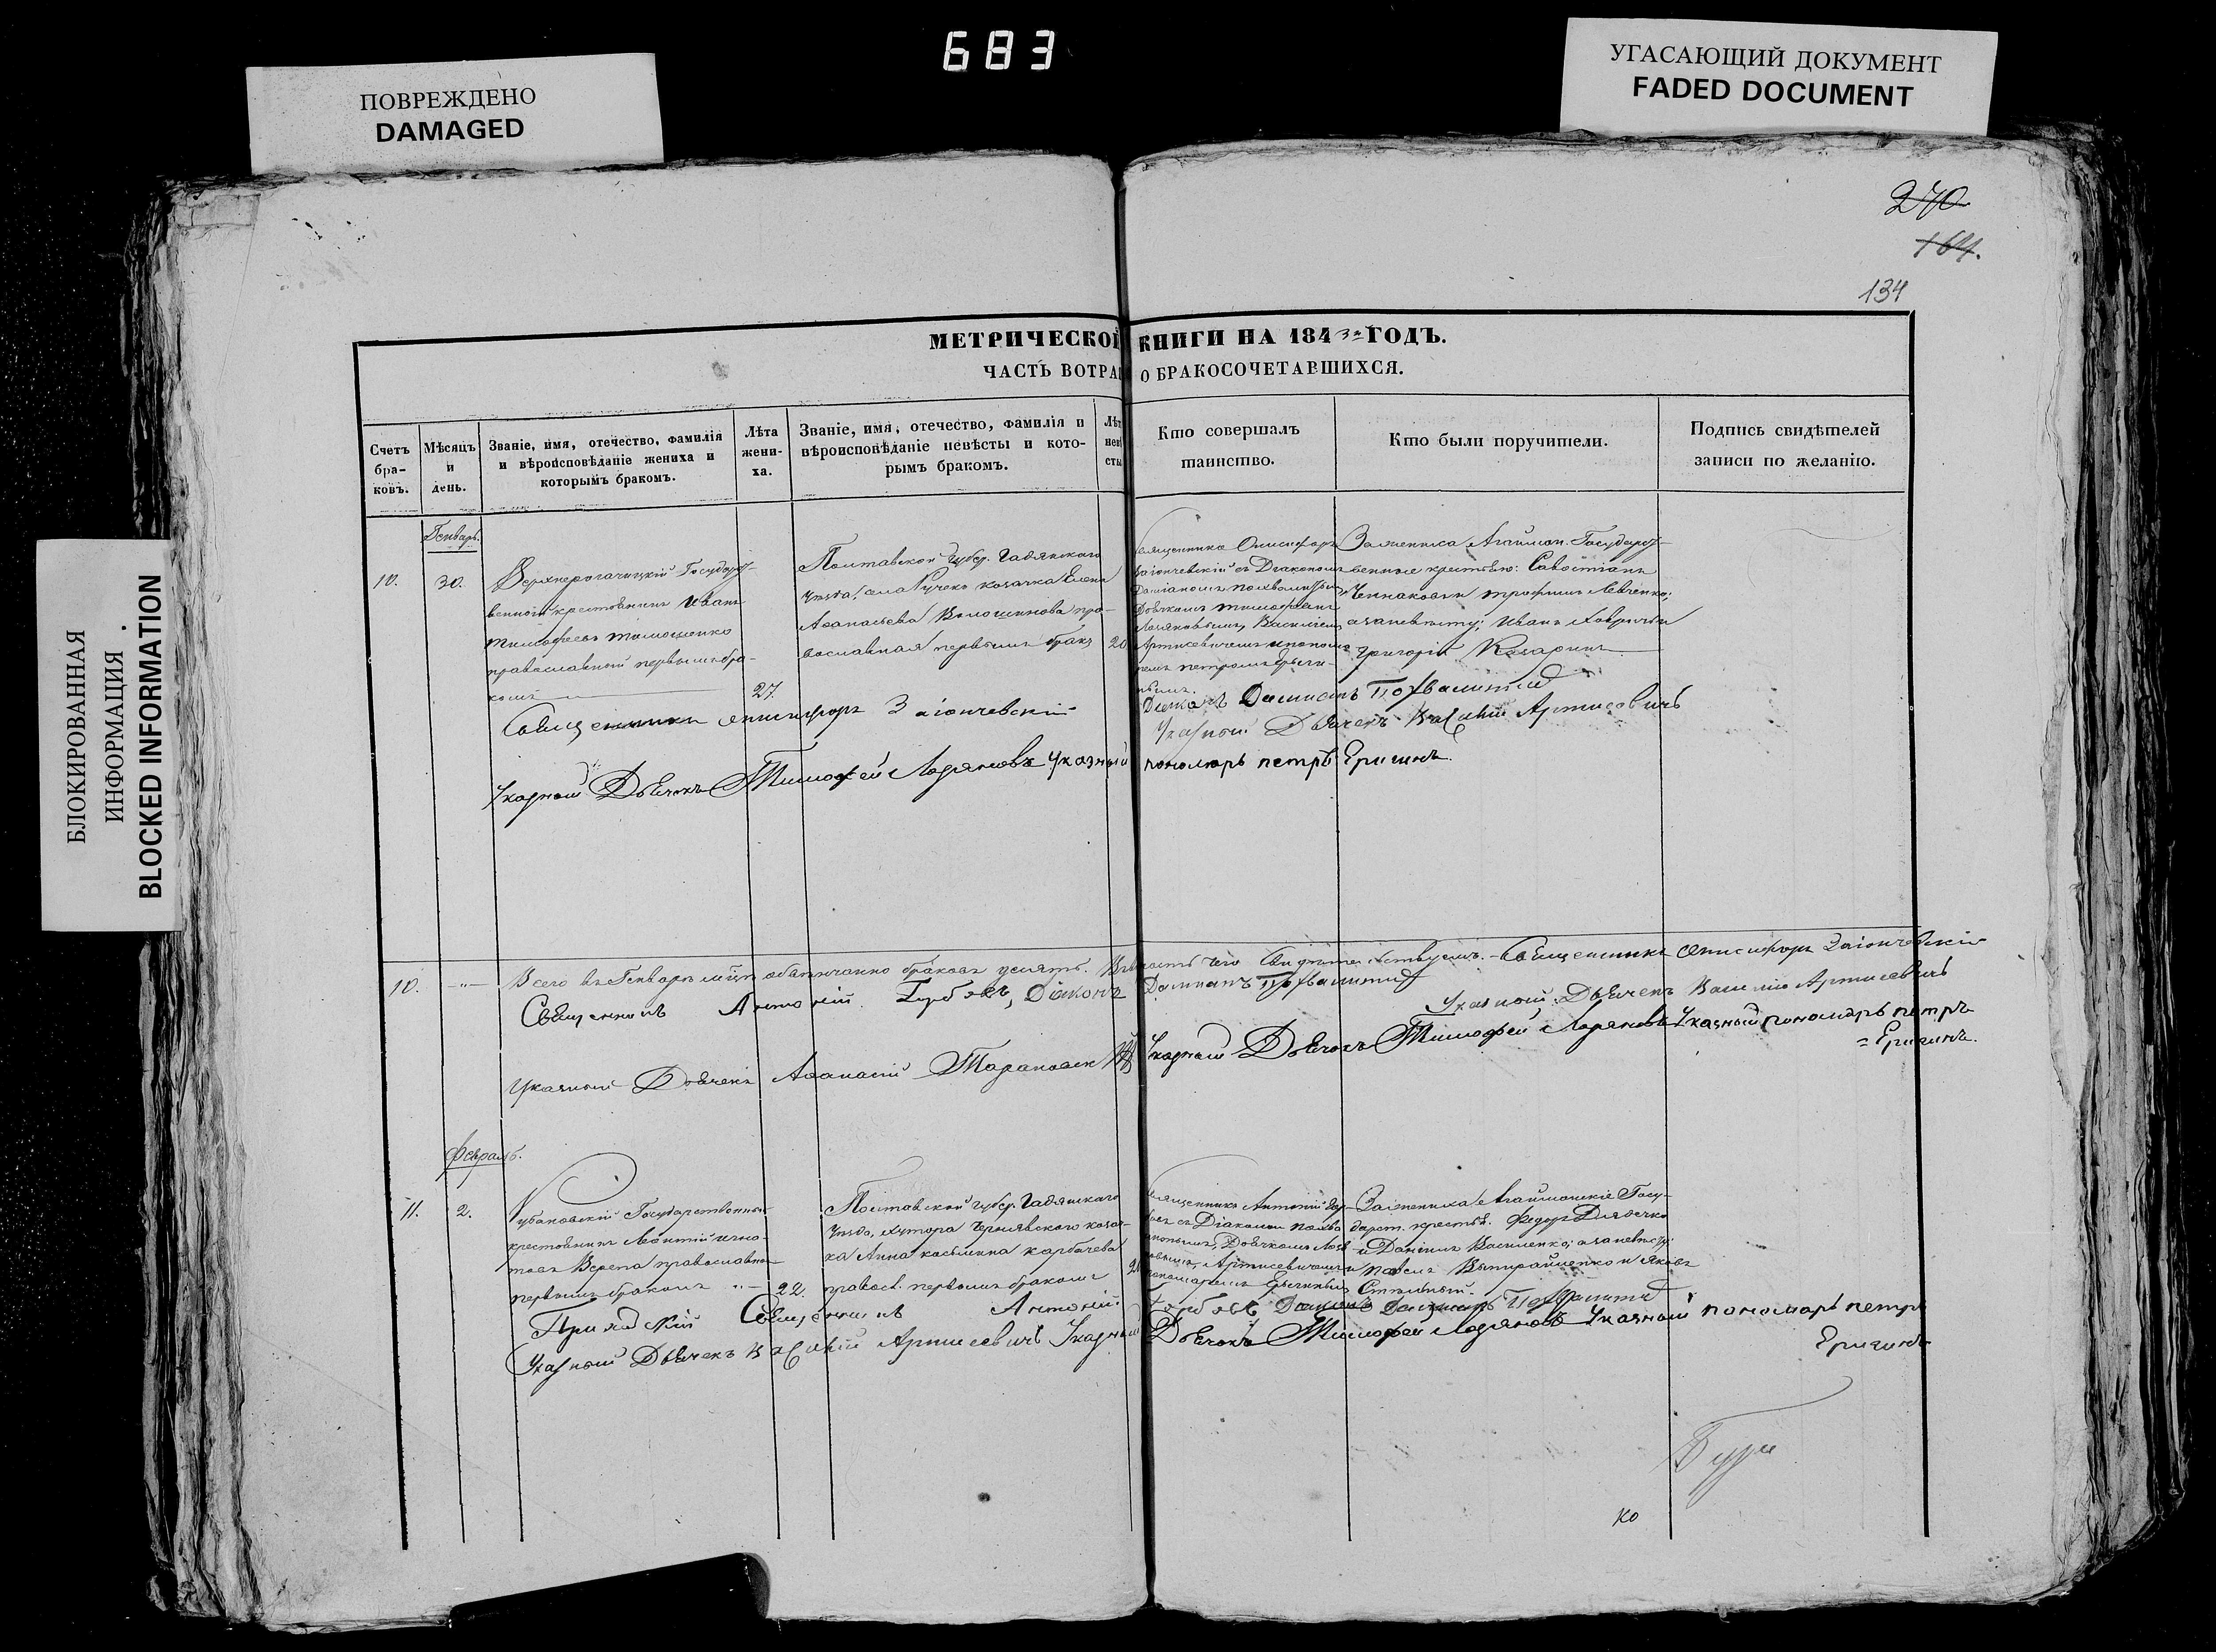 683
ПОВРЕЖДЕНО
DAMAGED
УГАСАЮЩИЙ ДОКУМЕНТ
FADED DOCUMENT
БЛОКИРОВАННАЯ
ИНФОРМАЦИЯ
BLOCKED INFORMATION
270
164.
134
МЕТРИЧЕСКОЙ КНИГИ НА 1843й ГОДЪ.
ЧАСТЬ ВОТРАЯ О БРАКОСОЧЕТАВШИХСЯ.
Счетъ
бра-
ковъ.
Мѣсяцъ
и
день.
Званіе, имя, отечество, фамилія
и вѣроисповѣданіе жениха и
которымъ бракомъ.
Лѣта
жени-
ха.
Званіе, имя, отечество, фамилія и
вѣроисповѣданіе невѣсты и кото-
рымъ бракомъ.
Лѣт
невѣ
сты
Кто совершалъ
таинство.
Кто были поручители.
Подпись свидѣтелей
записи по желанію.
Генварь.
10.
30.
Верхнерогачицкій Государст-
венный крестьянинъ Иванъ
Тимофеевъ Тимошенко
православный первымъ бра-
комъ
27.
Полтавской губер. Гадячскаго
уѣзда, села Лучекъ козачка Елена
Аѳанасьева Волошинова пра-
вославная первымъ бракъ
20
Священникъ Онисифоръ
Заіончевскій съ Діакономъ
Даміаномъ Похвалитымъ,
Дьячкомъ Тимофеемъ
Лодяновымъ, Василіемъ
Артисевичемъ и поном
ремъ Петромъ Ериги-
нымъ.
За жениха Агайман. Государст-
венные крестьяне: Савостіанъ
Чепнаковъ и Трофимъ Левченко;
а за невѣсту; Иванъ Лавричъ и
Григорій Казаринъ
Священникъ Онисифоръ Заіончевскій
Діаконъ Даміанъ Похвалитый
Указный Дьячекъ Василій Артисевичъ
Указный Дьячокъ Тимофей Лодяновъ Указный пономарь Петръ Еригинъ.
10.
Всего въ Генварѣ мцѣ обвѣнчанно браковъ десять. Въ вѣрности чего Свидѣтельствуемъ. Священникъ Онисифоръ Заіончевскій
Священникъ Антоній Горбовъ, Діаконъ Даміанъ Похвалитый
Указный Дьячекъ Василій Артисевичъ
Указный Дьячекъ Аѳанасій Тарановск
Указный Дьячокъ Тимофей Лодяновъ Указный пономарь Петръ
= Еригинъ.
Февраль.
11.
2.
Государственный
крестьянинъ Леонтій Игна-
тьевъ Верепа православный
первымъ бракомъ
22.
Полтавской губер. Гадячскаго
уѣзда, хутора Чернявского козач-
ка Анна Косьмина Карбачева
правосл. первымъ бракомъ
Священникъ Антоній Гор-
бовъ съ Діакономъ Похва
Дьячкомъ Лодя-
новымъ, Артисевичемъ и
пономаремъ Еригинымъ
За жениха Агайманскіе Госу-
дарст. крестья. Федоръ Длявенко
и Даніилъ Василенко; а за невѣсту:
Павелъ и Яковъ
Священникъ Антоній Горбовъ Діаконъ Даміанъ Похвалитый
Указный Дьячекъ Василій Артисевичъ Указный Дьячокъ Тимофей Лодяновъ Указный пономарь Петръ
Еригинъ
ко